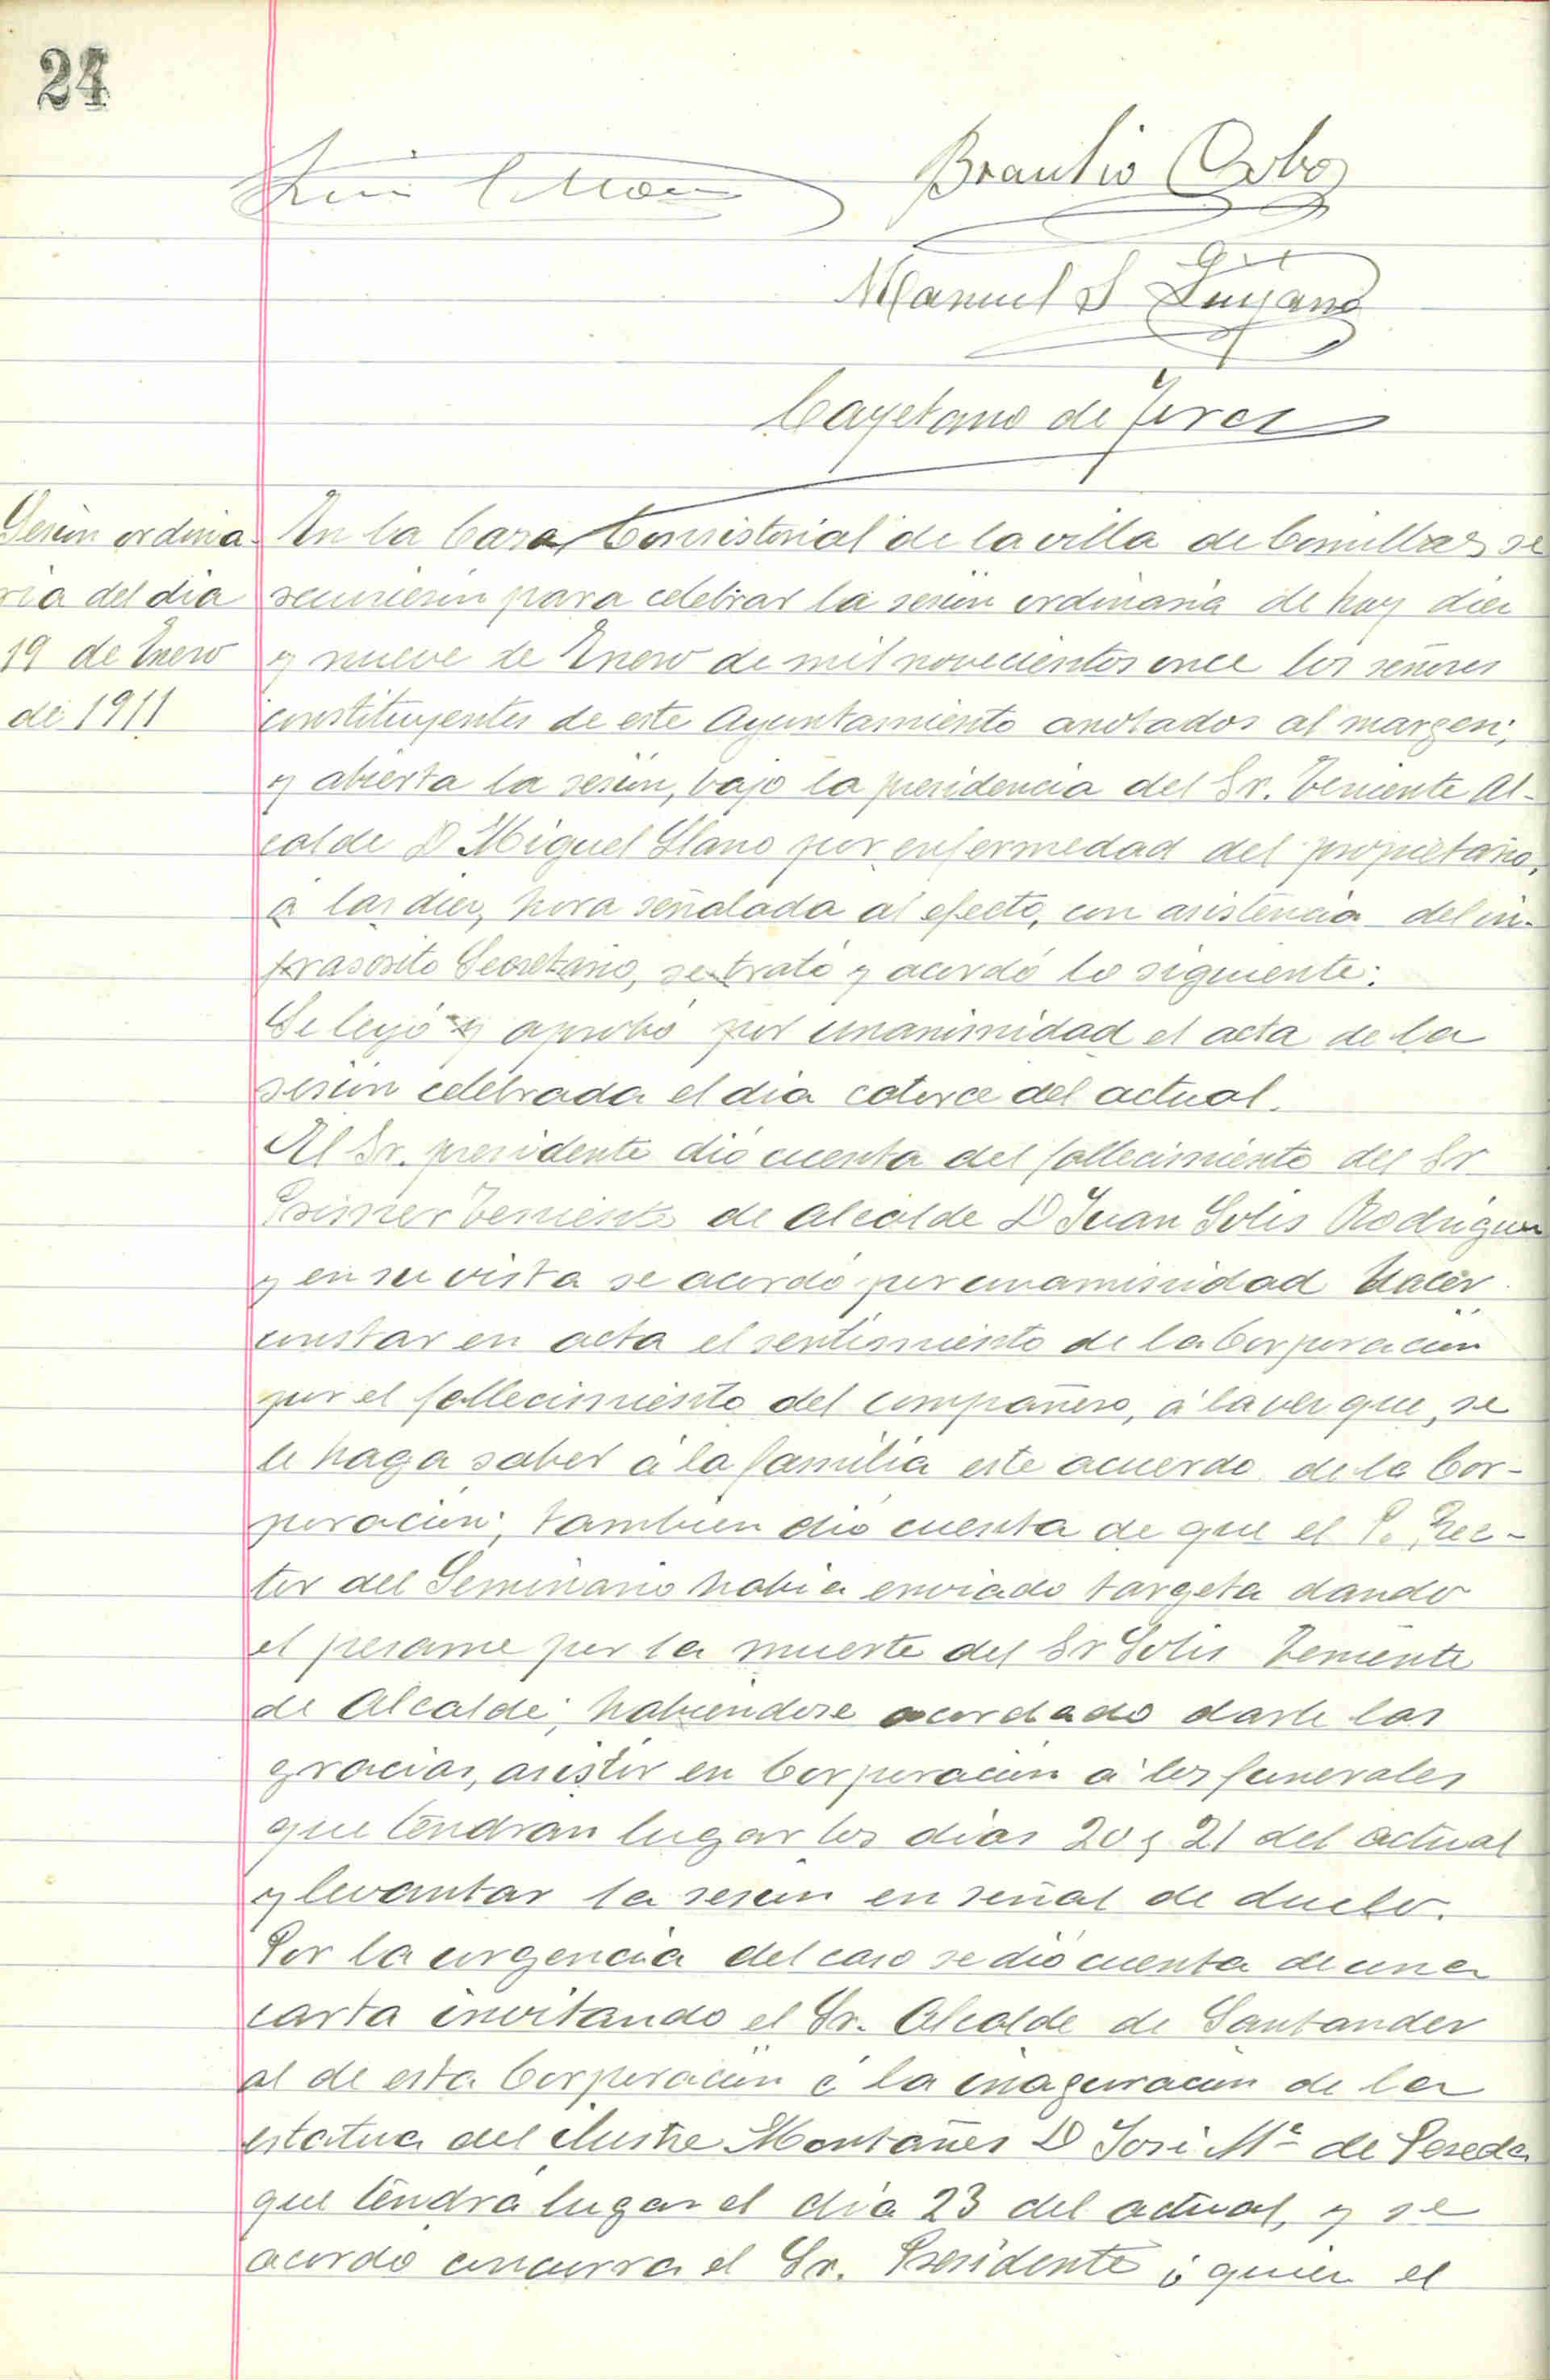 24
Braulio Cobo
Manuel S
Cayetano de
Sesion ordina-
ria del dia
19 de Enero
de 1911
En la Casa Consistorial de la villa de Comillas se
reunieron para celebrar la sesion ordinaria de hoy diez
y nueve de Enero de mil novecientos once los señores
constituyentes de este Ayuntamiento anotados al margen;
y abierta la sesion, bajo la presidencia del Sr. Teniente Al-
calde D Miguel Llano por enfermedad del propietario,
á las diez, hora señalada al efecto, con asistencia del in-
frascrito Secretario, se trató y acordó lo siguiente:
Se leyó y aprobó por unanimidad el acta de la
sesion celebrada el dia catorce del actual.
El Sr. presidente dió cuenta del fallecimiento del Sr
Primer Teniente de Alcalde D Juan Solis Rodriguez
y en su vista se acordó por unanimidad hacer
constar en acta el sentimiento de la Corporacion
por el fallecimiento del compañero, á la vez que, se
le haga saber á la familia este acuerdo de la Cor-
poracion; tambien dió cuenta de que el P. Rec-
tor del Seminario habia enviado targeta dando
el pesame por la muerte del Sr Solis Teniente
de Alcalde; habiendose acordado darle las
gracias, asistir en Corporacion á los funerales
que tendran lugar los dias 20 y 21 del actual
y levantar la sesion en señal de duelo.
Por la urgencia del caso se dió cuenta de una
carta invitando el Sr. Alcalde de Santander
al de esta Corporacion á la inaguracion de la
estatua del ilustre Montañes D José Mª de Pereda
que tendrá lugar el dia 23 del actual, y se
acordó concurra el Sr. Presidente ó quien el